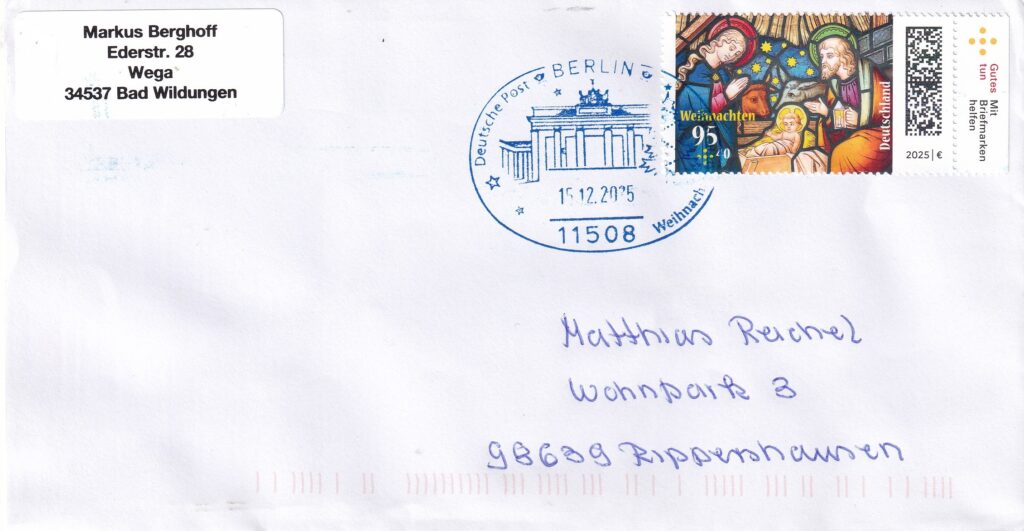 Markus Berghoff
Ederstr. 28
Wega
34537 Bad Wildungen
Deutsche Post
BERLIN
15.12.2025
11508
Weihnach
Weihnachten
95
40
Deutschland
2025 | €
Gutes tun
Mit Briefmarken helfen
Matthias Reichel
Wohnpark 3
98639 Rippershausen